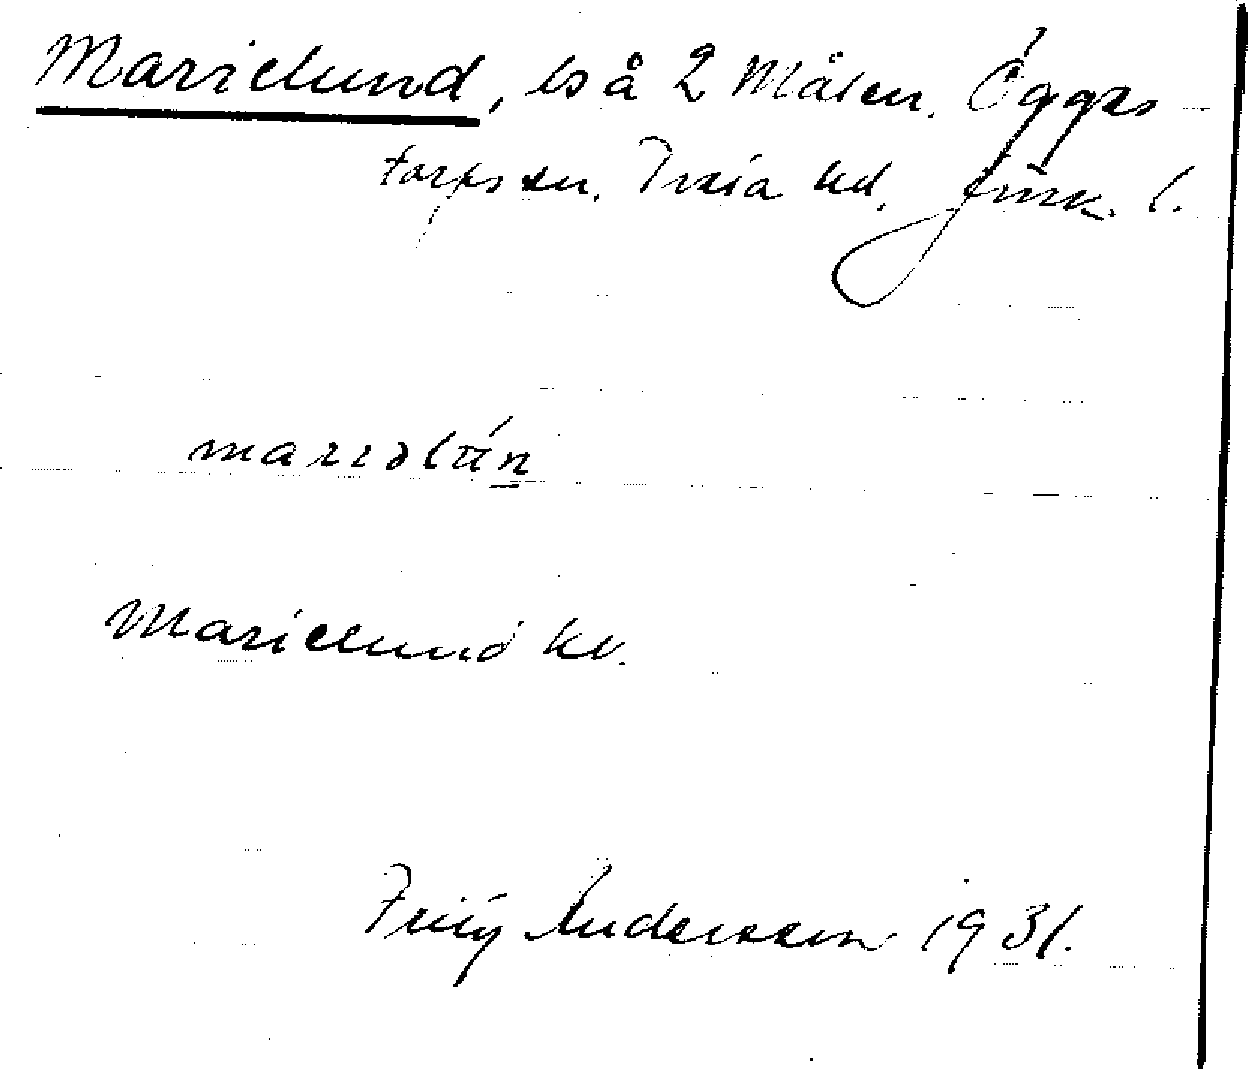 Marielund, ls å 2 Målen. Öggestorps sn. Tveta hd. Jönk. l.
marıəlún
Marielund kv.
Fritz Andersson 1931.